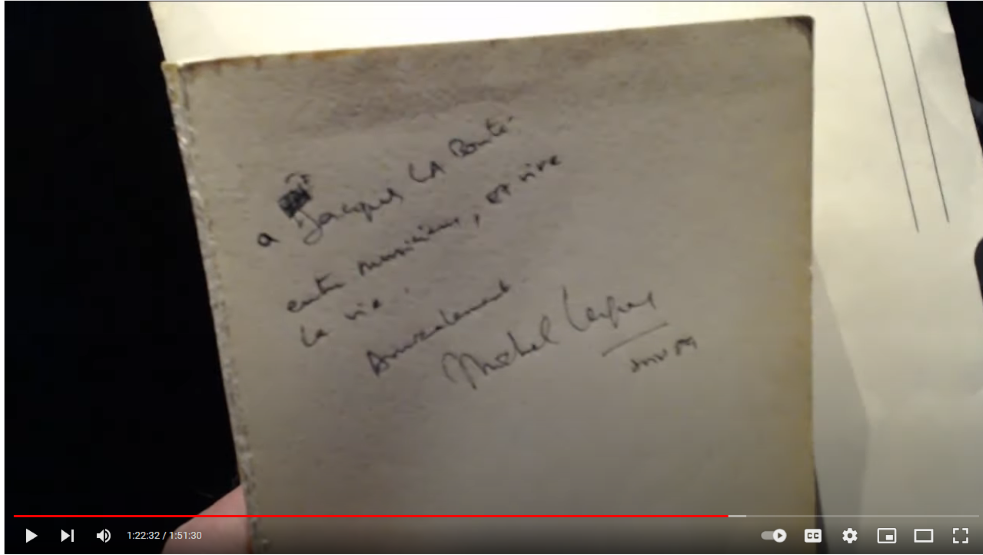 a Jacques LA Bonté
entre musiciens, et vive
la vie.
Amicalement
Michel
1:22:32 / 1:51:30
CC